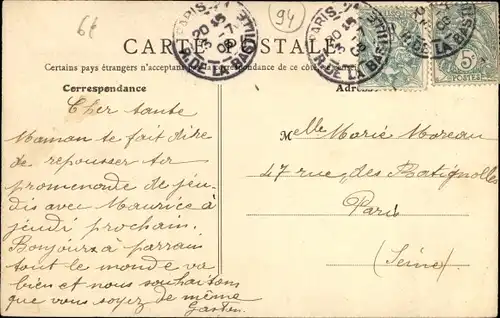 6t
94
PARIS
20 45
3-7
08
R. DE LA BASTILLE
PARIS
20 45
3-7
08
R. DE LA BASTILLE
08
R. DE LA BASTILLE
5
POSTES
CARTE POSTALE
Certains pays étrangers n'acceptant pas la correspondance de ce côté
Correspondance
Adresse
Cher tante
Maman te fait dire
de repousser ta
promenade de jeu-
dis avec Maurice à
jeudi prochain.
Bonjours à parrain
tout le monde va
bien et nous souhaitons
que vous soyez de même
Gaston.
Melle Marie Moreau
47 rue des Batignolles
Paris
(Seine)